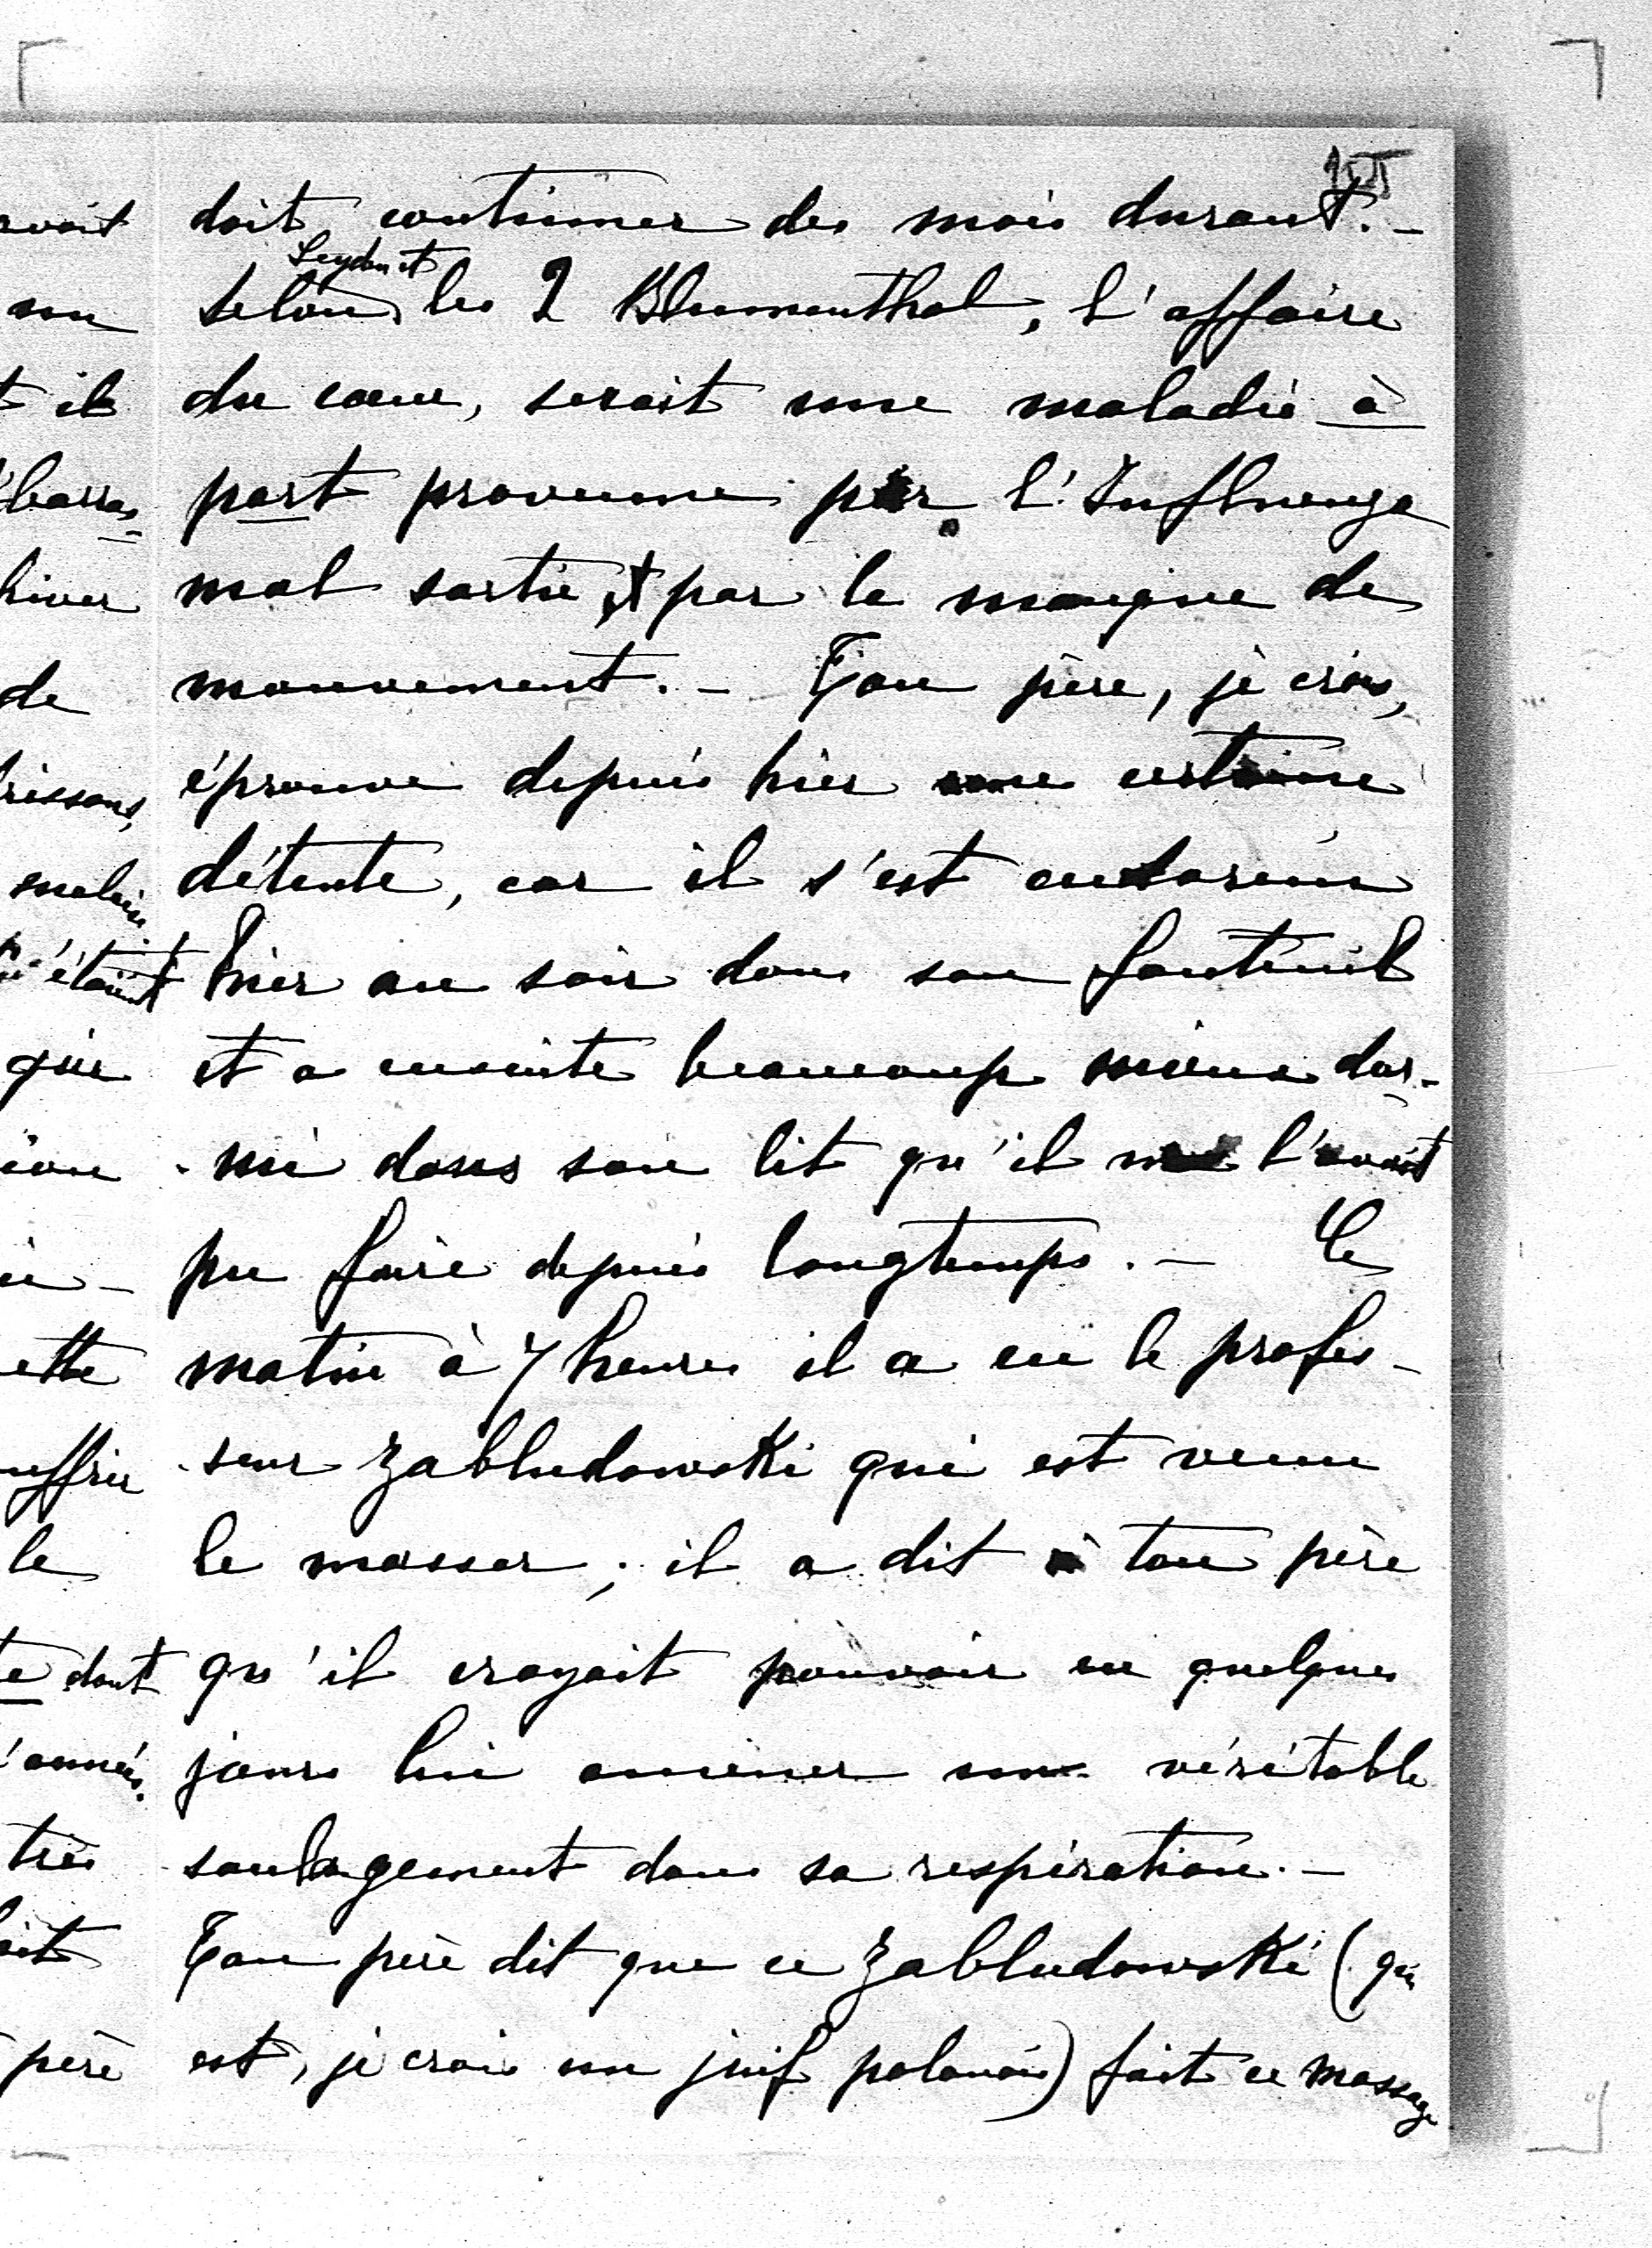 doit continuer des mois durant. –
Leyden et
Selon les 2 Blumenthal, l'affaire
du cœur, serait une maladie à
part provenue par l'Influenza
mal sortie et par le manque de
mouvement. – Ton père, je crois,
éprouve depuis hier une certaine
détente, car il s'est endormi
hier au soir dans son fauteuil
et a ensuite beaucoup mieux dor-
-mi dans son lit qu'il ne l'avait
pu faire depuis longtemps. – Ce
matin à 7 heures il a eu le profes-
-seur Zabludowski qui est venu
le masser ; il a dit à ton père
qu'il croyait pouvoir en quelques
jours lui amener un véritable
soulagement dans sa respiration. –
Ton père dit que ce Zabludowski (qui
est, je crois un juif polonais) fait ce massage
un
t il
hiver
de
rissons,
malaise
étaient
que
ette
le
dont
très
père